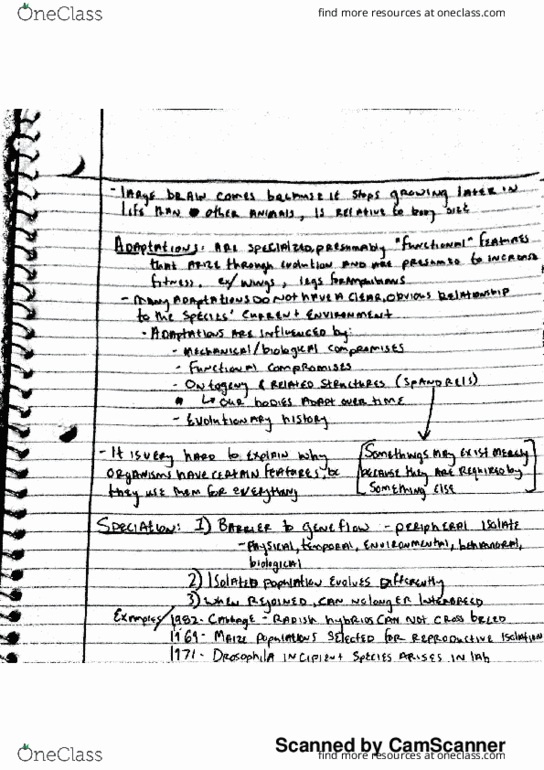 OneClass
find more resources at oneclass.com
- Large brain comes because it stops growing later in
life than other animals, is relative to body size
Adaptations: are specialized, presumably "functional" features
that arize through evolution and are presumed to increase
fitness. ex/ wings, legs for amphibians
- Many adaptations do not have a clear, obvious relationship
to the species' current environment
- Adaptations are influenced by:
- Mechanical/biological compromises
- Functional compromises
- Ontogeny & related structures (spandrels)
↳ our bodies adapt over time
- Evolutionary history
- It is very hard to explain why
organisms have certain features, bc
they use them for everything
[Somethings may exist merely
because they are required by
something else]
Speciation: 1) Barrier to gene flow - peripheral isolate
- Physical, temporal, environmental, behavioral,
biological
2) Isolated population evolves differently
3) When rejoined, can no longer interbreed
Examples/ 1982- Cabbage - Radish hybrids can not cross breed
1969- Maize populations selected for reproductive isolation
1971- Drosophila incipient species arises in lab
Scanned by CamScanner
OneClass
find more resources at oneclass.com